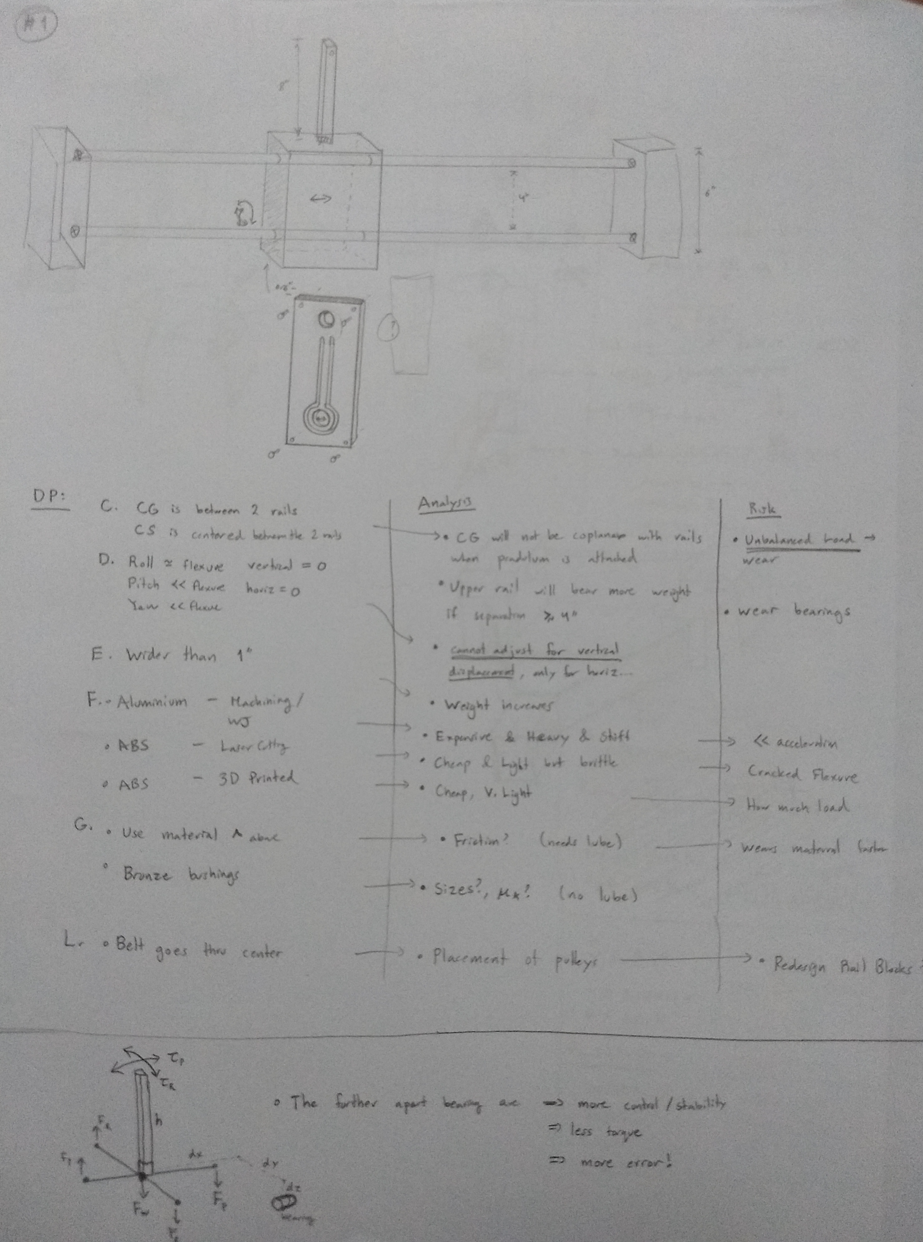 #1
4"
6"
DP:
C. CG is between 2 rails
CS is centered between the 2 rails
D. Roll ≈ flexure vertical = 0
Pitch << flexure horiz = 0
Yaw << flexure
E. Wider than 1"
F. • Aluminium – Machining /
WJ
• ABS – Laser Cutting
• ABS – 3D Printed
G. • Use material ^ above
• Bronze bushings
L. • Belt goes thru center
Analysis
• CG will not be coplanar with rails
when pendulum is attached
• Upper rail will bear more weight
if separation ≥ 4"
• cannot adjust for vertical
displacement, only for horiz...
• Weight increases
• Expensive & Heavy & Stiff
• Cheap & Light but brittle
• Cheap, V. Light
• Friction? (needs lube)
• Sizes?, μk? (no lube)
• Placement of pulleys
Risk
• Unbalanced Load →
wear
• wear bearings
<< acceleration
Cracked Flexure
How much load
wears material faster
• Redesign Rail Blocks
τP
τR
h
FR
FP
dx
dy
dz
Fw
FP
bearing
• The further apart bearing are ⇒ more control/stability
⇒ less torque
⇒ more error!